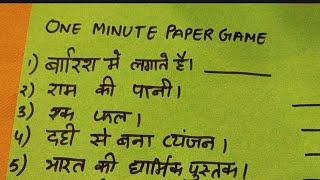 ONE MINUTE PAPER GAME
1) बारिश में लगाते है। ______
2) राम की पत्नी।
3) एक फल।
4) दही से बना व्यंजन।
5) भारत की धार्मिक पुस्तक।